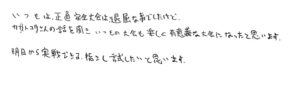 いつもは、正直安全大会は退屈な事でしたけど、
カガノトヨタさんの話を聞き いつもの大会も楽しく有意義な大会になったと思います。
明日から実戦できる、指さし試したいと思います。